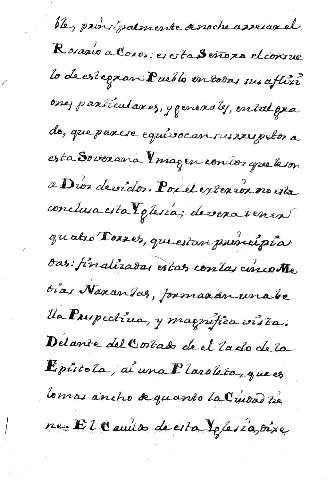 ble, principalmente de noche a rezar el
Rosario a Coros: es esta Señora el consue
lo de este gran Pueblo en todas sus aflixi
ones particulares, y generales, en tal gra
do, que parese equivocan sus respetos a
esta Soverana Ymagen con los que la son
a Dios devidos. Por el exterior no esta
conclusa esta Yglesia; devera tener
quatro Torres, que estan principia
das: finalizadas estas con las cinco Me
dias Naranjas, formaran una be
lla Perspectiva, y magnifica vista.
Delante del Costado de el lado de la
Epistola, ai una Plazoleta, que es
lo mas ancho de quanto la Ciudad tie
ne. El Cavildo de esta Yglesia, dixe